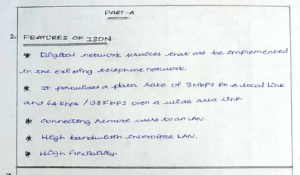 PART-A
2. FEATURES OF ISDN.
* Digital network services that are be implemented
in the existing telephone network.
* It provides a data rate of 2Mbps on a local link
and 64 kbps / 128 Kbps over a wide area link
* Connecting remote users to an LAN.
* High bandwidth LAN.
* High flexibility.